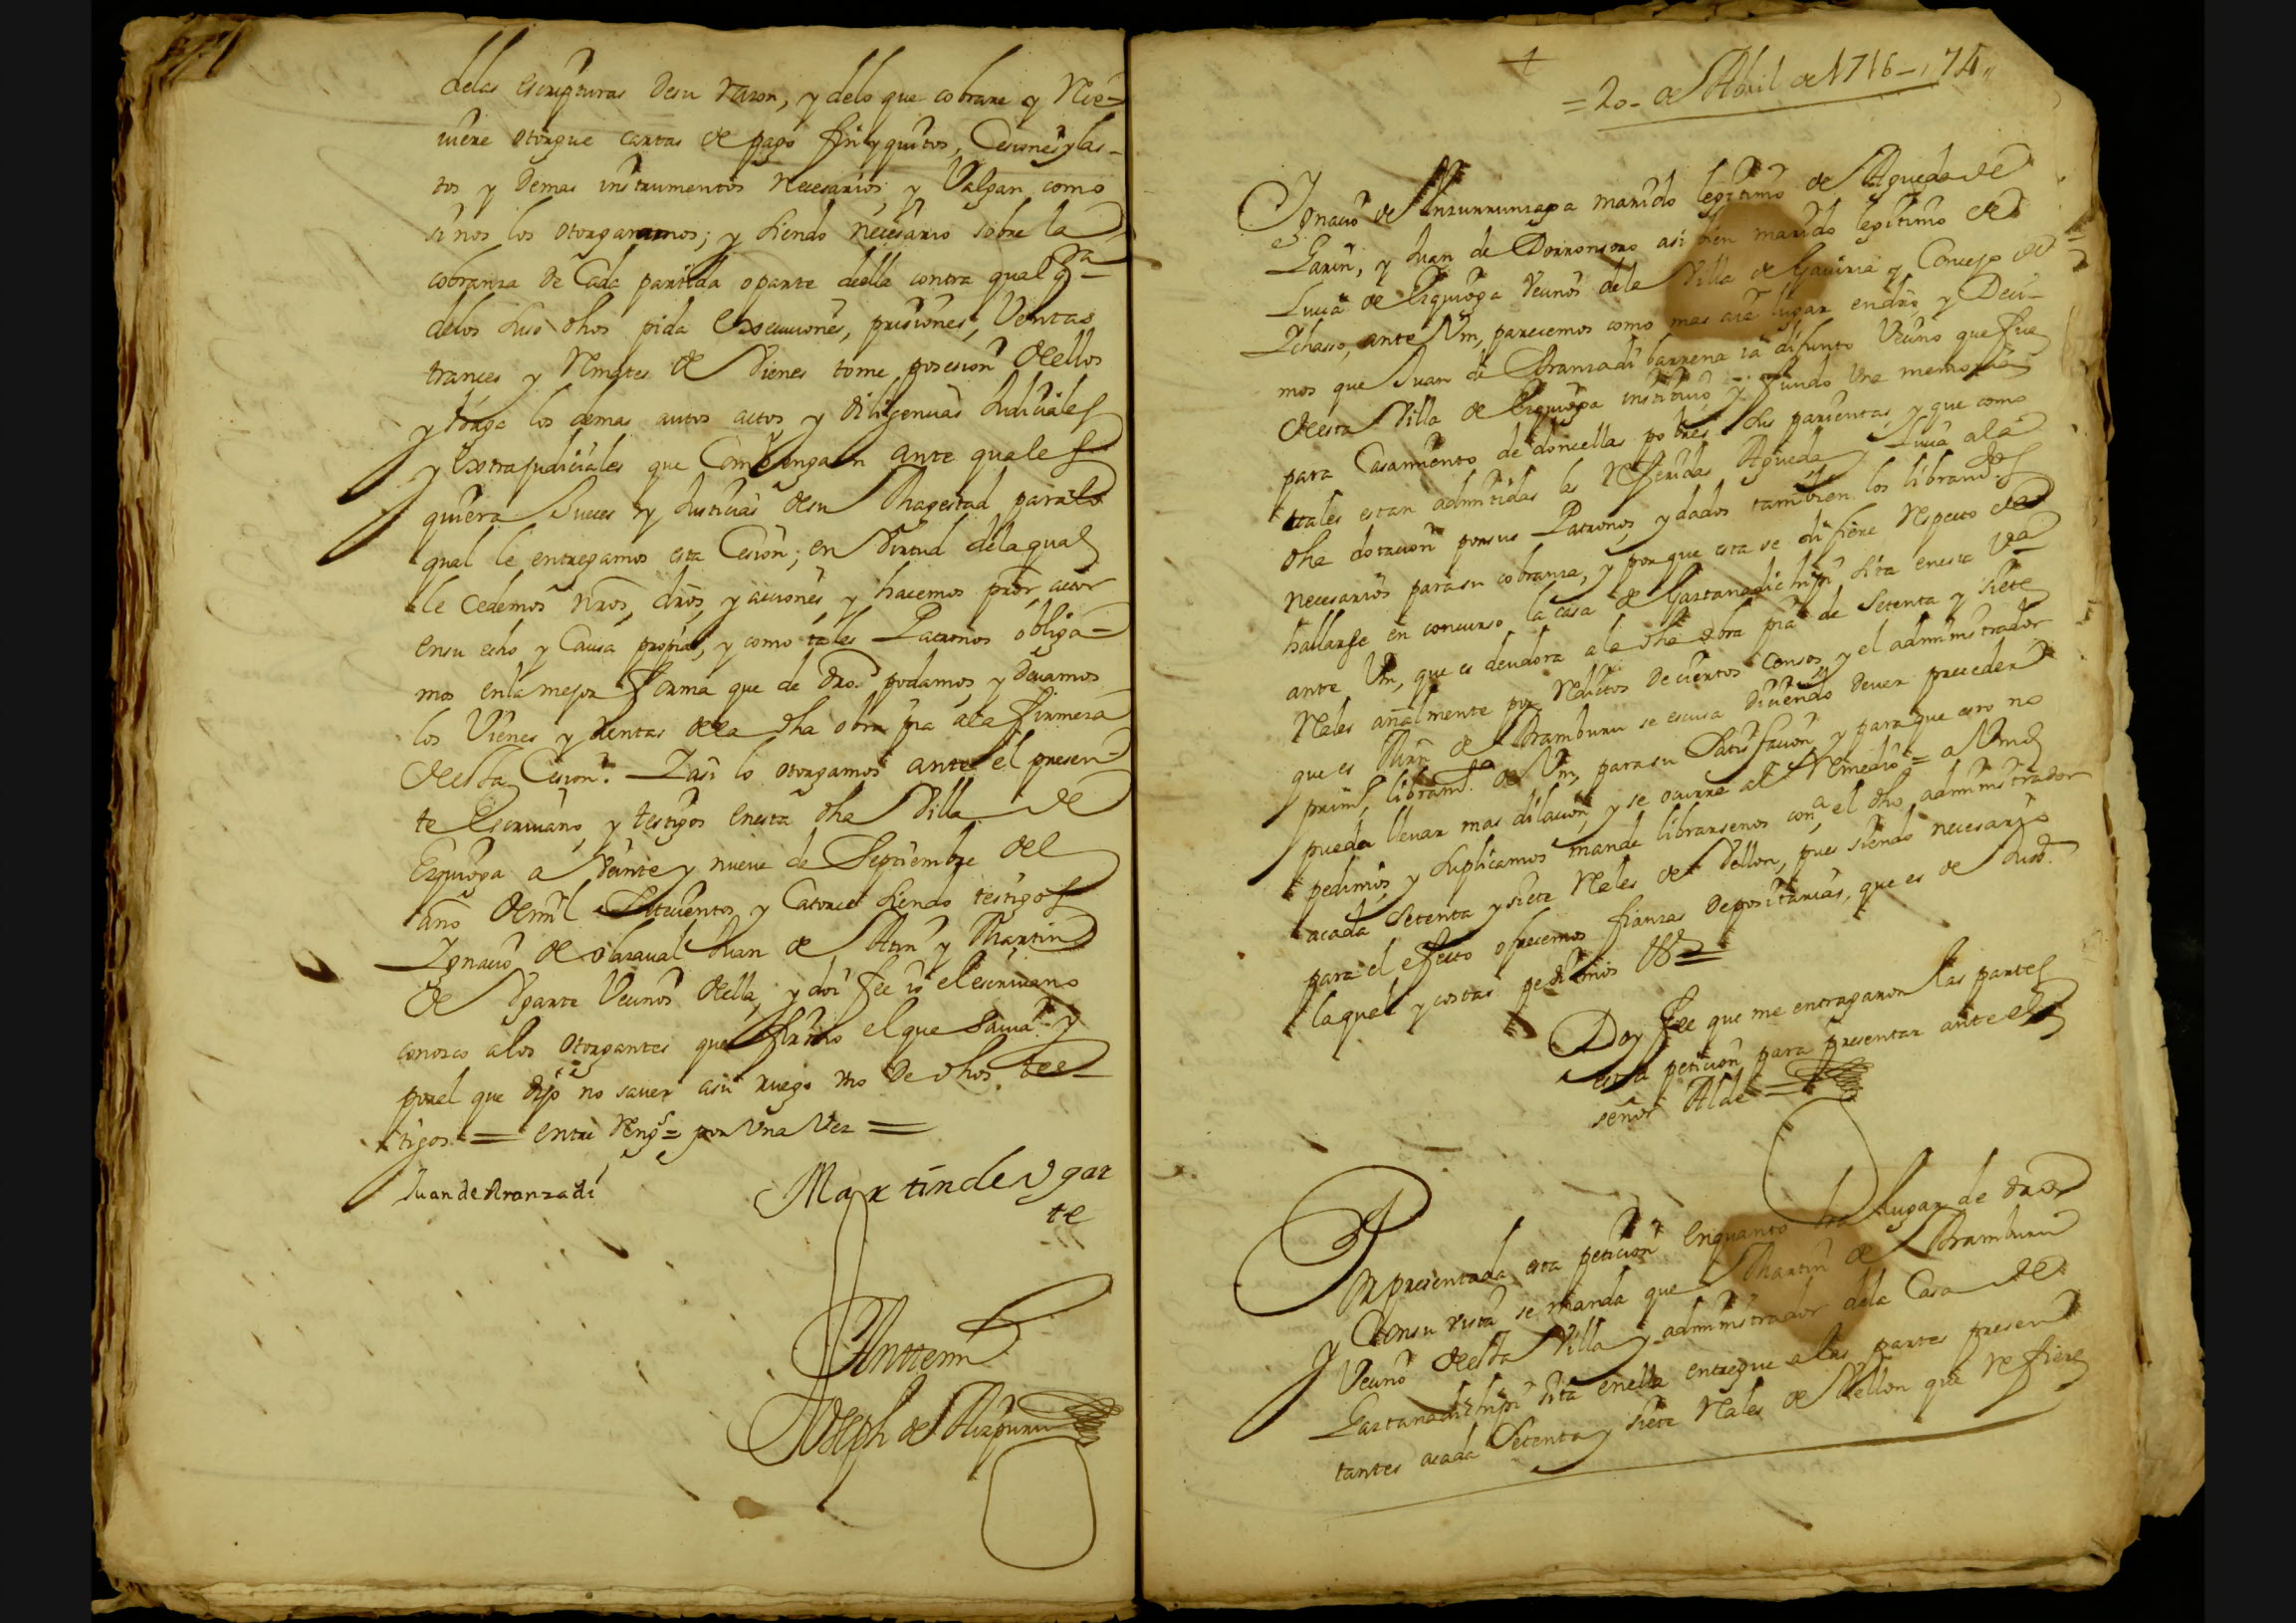 delas escripturas desu razon, y delo que cobrare y Rece-
uiere otorgue cartas de pago finyquitos, Cesiones y las-
tos y demas instrumentos necesarios, y Valgan como
si nos los otorgaramos; y siendo necesario sobre la
cobranza de Cada partida o parte della contra qual qra
delos suso dhos pida Execuciones, prisiones, Ventas
trances y Remates de Vienes tome posesion de ellos
y haga los demas autos actos y diligencias Judiciales
y extrajudiciales que Combengan ante quales
quiera Jueces y Justicias desu Magestad para lo
qual le entregamos esta Cesion; en Virtud dela qual
le Cedemos nros dros y acciones y hacemos pror actor
ensu echo y Causa propia, y como tales Patronos obliga-
mos en la mejor forma que de dro podamos y deuamos
los Vienes y Rentas dela dha obra pia ala firmeza
de esta Cesion. Y asi lo otorgamos ante el presen-
te Escriuano y testigos enesta dha Villa de
Ezquioga a Veinte y nueue de Septiembre del
año de mil Setecientos y Catorce siendo testigos
Ignacio de olazaual Juan de Atin y Martin
de Vgarte Vecinos della, y doi fee io el escriuano
conozco alos otorgantes que firmo el que sauia y
porel que dijo no sauer asu ruego vno de dhos tes-
tigos = entre Rengs = por Vna Vez =
Juan de Aranzadi
Martin de Vgar
te
Anttemi
Joseph de Aizpuru
+
= 20 - de Abril de 1716 - 74
Ignacio de Insurrunzaga marido legitimo de Agueda de
Garin, y Juan de Dorronsoro asi bien marido legitimo de
Lucia de Ezquioga Vecinos dela Villa de Gauiria y Concejo de
Ychasso, ante Vm, parecemos como mas aia lugar endro, y Deci-
mos que Juan de Aranzadi barrena ia difunto Vecino que fue
de esta Villa de Ezquioga instituio y fundo Vna memoria
para Casamiento de doncellas pobres sus parientas, y que como
tales estan admitidas las Referidas Agueda y Lucia ala
dha dotacion porsus Patronos, y dados tambien los libramtos
necesarios parasu cobranza, y porque esta se difiere Respecto de
hallarse en concurso la casa de Gaztanadi sita enesta Va
ante Vm, que es deudora ala dha obra pia de Setenta y siete
Reales añalmente por Reditos de ciertos Censos y el administrador
que es Mrn de Aramburu se escusa diciendo deuer preceder
libramto de Vm, parasu Satisfacion, y para que esto no
pueda lleuar mas dilacion, y se ocurre al Remedio = a Vmd
pedimos, y suplicamos mande librarsenos cona el dho administrador
acada Setenta y siete Reales de Vellon, pues siendo necesario
para el efecto ofrecemos fianzas depositarias, que es de Justa
laqual y costas pedimos
Doy fee que me entragaron las partes
esta peticion para presentar ante el
señor Alde =
Por presentada esta peticion enquanto ha lugar de dro
y Consu vista se manda que Martin de Aramburu
Vecino de esta Villa y administrador dela Casa de
sita enella entregue alas partes presen
tantes acada Setenta y siete Reales de Vellon que Refiere